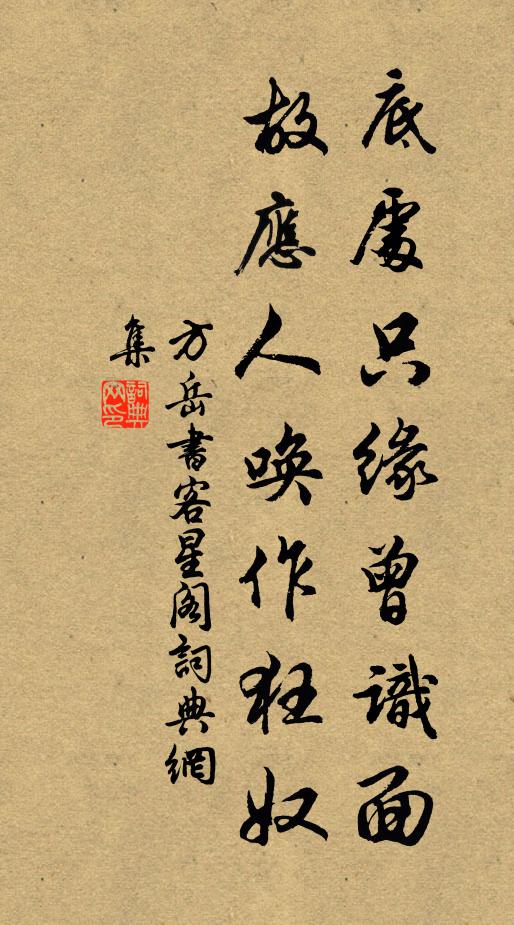 底處只緣曾識面
故應人喚作狂奴
方岳書客星閣詞典網
集
詞典網印